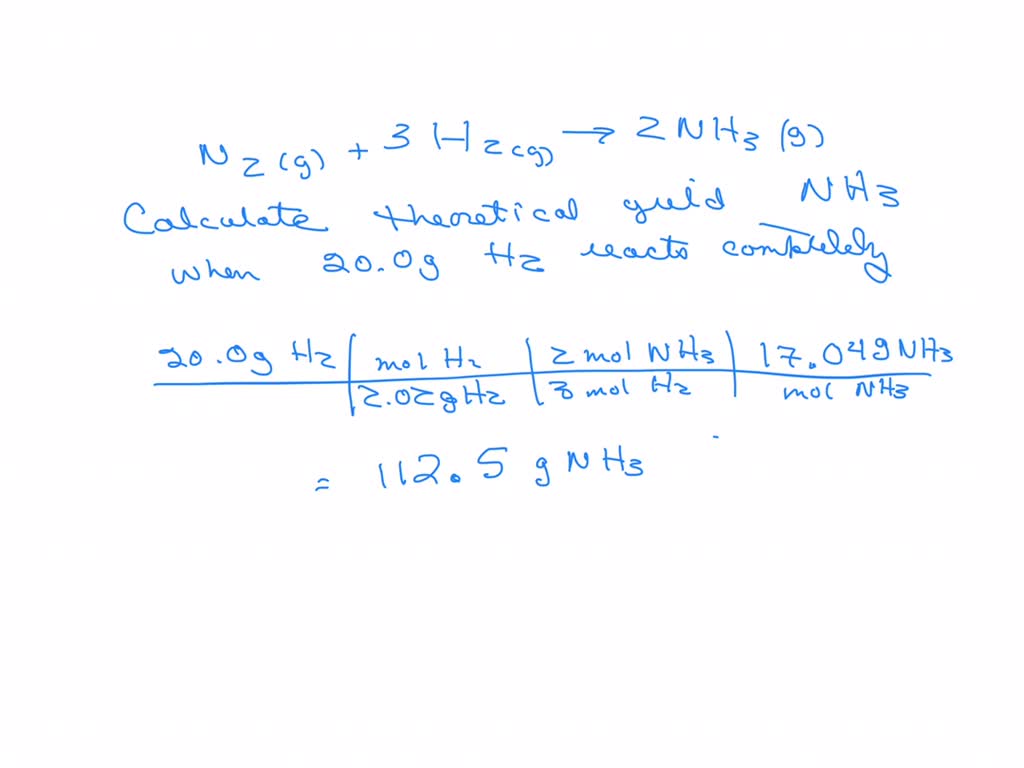 N2(g) + 3 H2(g) → 2NH3(g)
Calculate theoretical yeild NH3
when 20.0g H2 reacts completely
20.0g H2 | mol H2 | 2 mol NH3 | 17.04g NH3
2.02g H2 | 3 mol H2 | mol NH3
= 112.5 g NH3